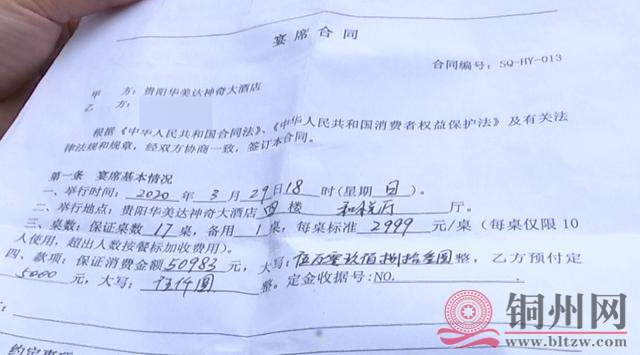 宴席合同
合同编号：SQ-HY-013
甲 方：贵阳华美达神奇大酒店
乙 方：
根据《中华人民共和国合同法》、《中华人民共和国消费者权益保护法》及有关法
律法规和规章，经双方协商一致，签订本合同。
第一条 宴席基本情况
一、举行时间：2020 年 3 月 29 日 18 时(星期 日)。
二、举行地点：贵阳华美达神奇大酒店 四 楼 和悦厅 厅。
三、桌数：保证桌数 17 桌，备用 1 桌，每桌标准 2999 元/桌（每桌仅限 10
人使用，超出人数按餐标加收费用）。
四、款项：保证消费金额 50983 元，大写：伍万零玖佰捌拾叁圆 整，乙方预付定
5000 元，大写：伍仟圆 整。定金收据号：NO.
铜州网
www.bltzw.com